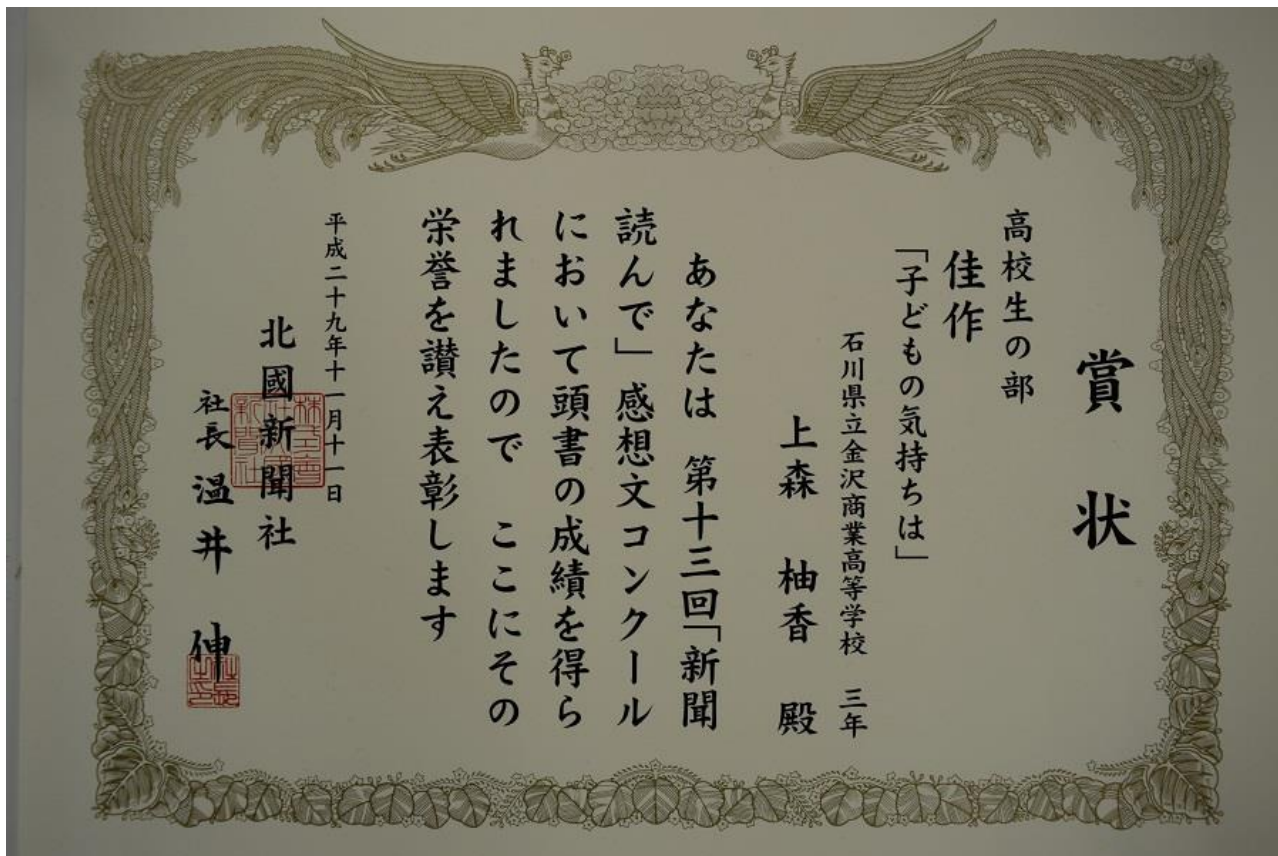 賞状
高校生の部
佳作
「子どもの気持ちは」
石川県立金沢商業高等学校 三年
上森 柚香 殿
あなたは 第十三回「新聞
読んで」感想文コンクール
において頭書の成績を得ら
れましたので ここにその
栄誉を讃え表彰します
平成二十九年十一月十一日
北國新聞社
社長 温井 伸